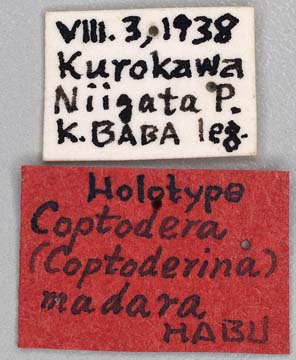 VIII. 3, 1938
Kurokawa
Niigata P.
K. BABA leg.
Holotype
Coptodera
(Coptoderina)
madara
HABU